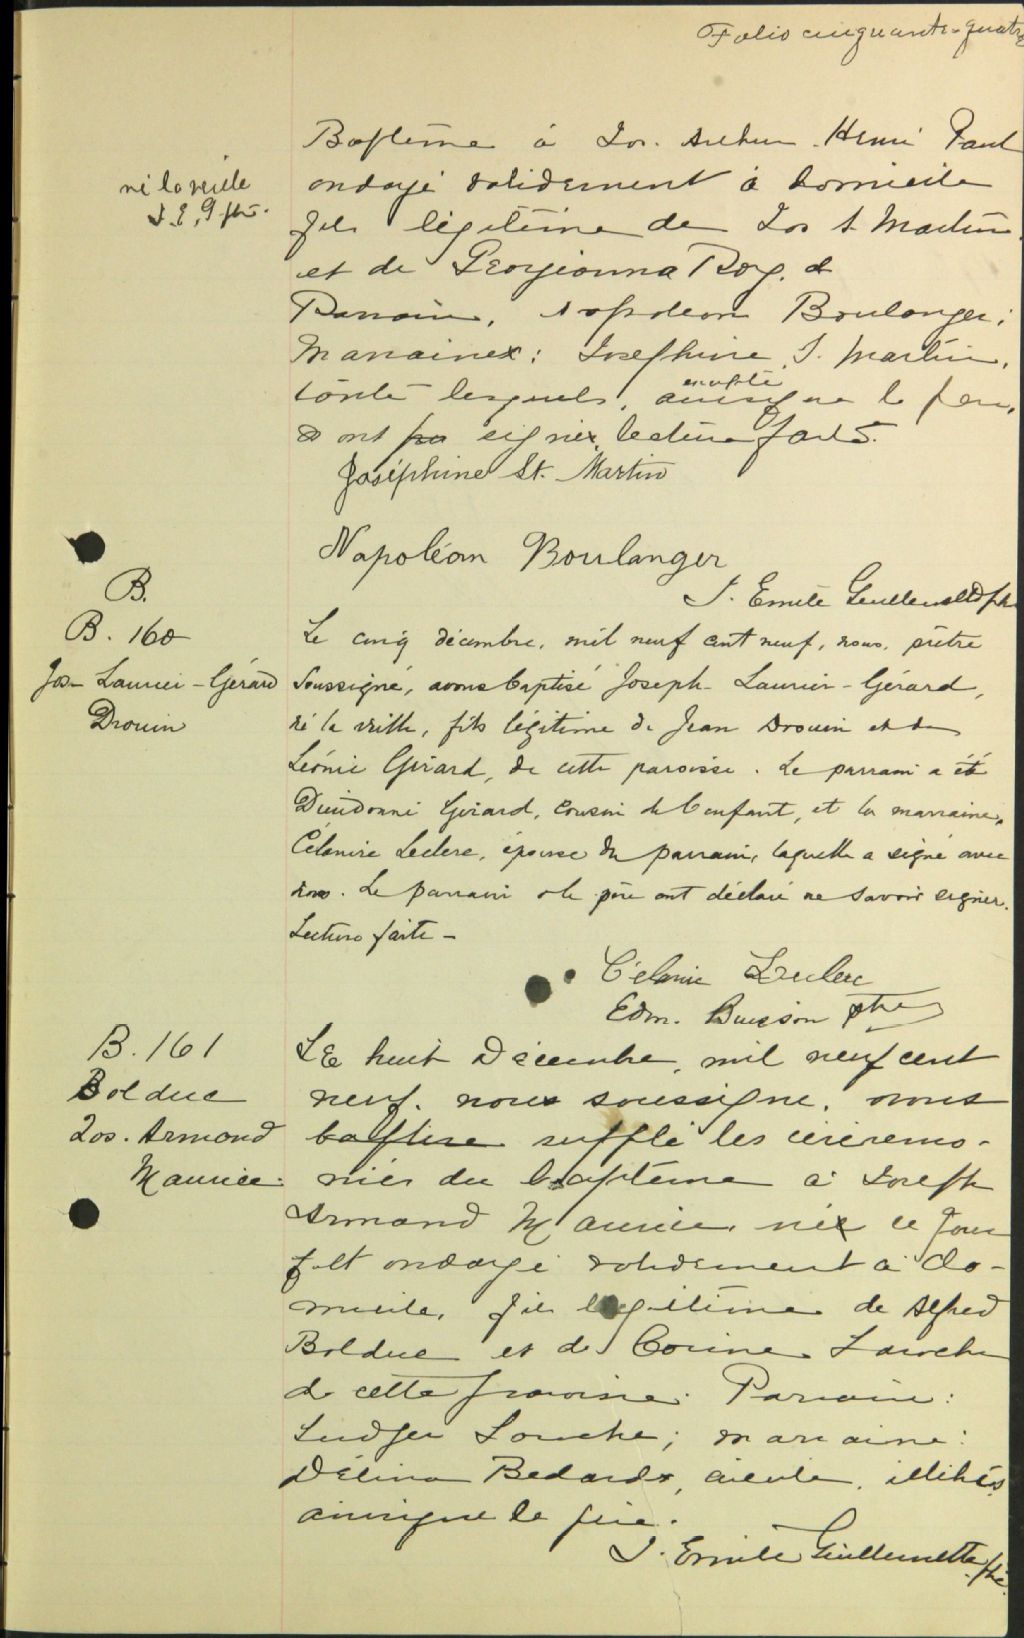 Folio cinquante-quatre
Baptême à Jos. Arthur Henri Paul
né la veille
J. E. G ptre.
ondoyé validement à domicile
fils légitime de Jos St Martin
et de Georgianna Roy. &
Parrain, Napoleon Boulanger;
Marraine: Josephine S. Martin,
lesquels, excepté le père,
ont signé, lecture faite.
Joséphine St. Martin
Napoléon Boulanger
J. Emile Guillemette ptre
B.
B. 160
Jos- Laurier-Gérard
Drouin
Le cinq décembre, mil neuf cent neuf, nous, prêtre
soussigné, avons baptisé Joseph-Laurier-Gérard,
né la veille, fils légitime de Jean Drouin et de
Léonie Girard, de cette paroisse. Le parrain a été
Dieudonné Girard, cousin de l'enfant, et la marraine,
Célanire Leclerc, épouse du parrain, laquelle a signé avec
nous. Le parrain et le père ont déclaré ne savoir signer.
Lecture faite-
Célanie Leclerc
Edm. Buisson ptre
B. 161
Bolduc
Jos. Armond
Maurice.
Le huit Décembre, mil neuf cent
neuf. nous soussigné, avons
baptise supplé les cérémo-
nies du baptême à Joseph
Armand Maurice, né ce jour
et ondoyé validement à do-
micile, fils légitime de Alfred
Bolduc et de Corinne Laroche
de cette paroisse. Parrain:
Ludger Laroche; marraine:
Délina Bedard, aieule, illitrés
ainsique le père.
J. Emile Guillemette ptre.